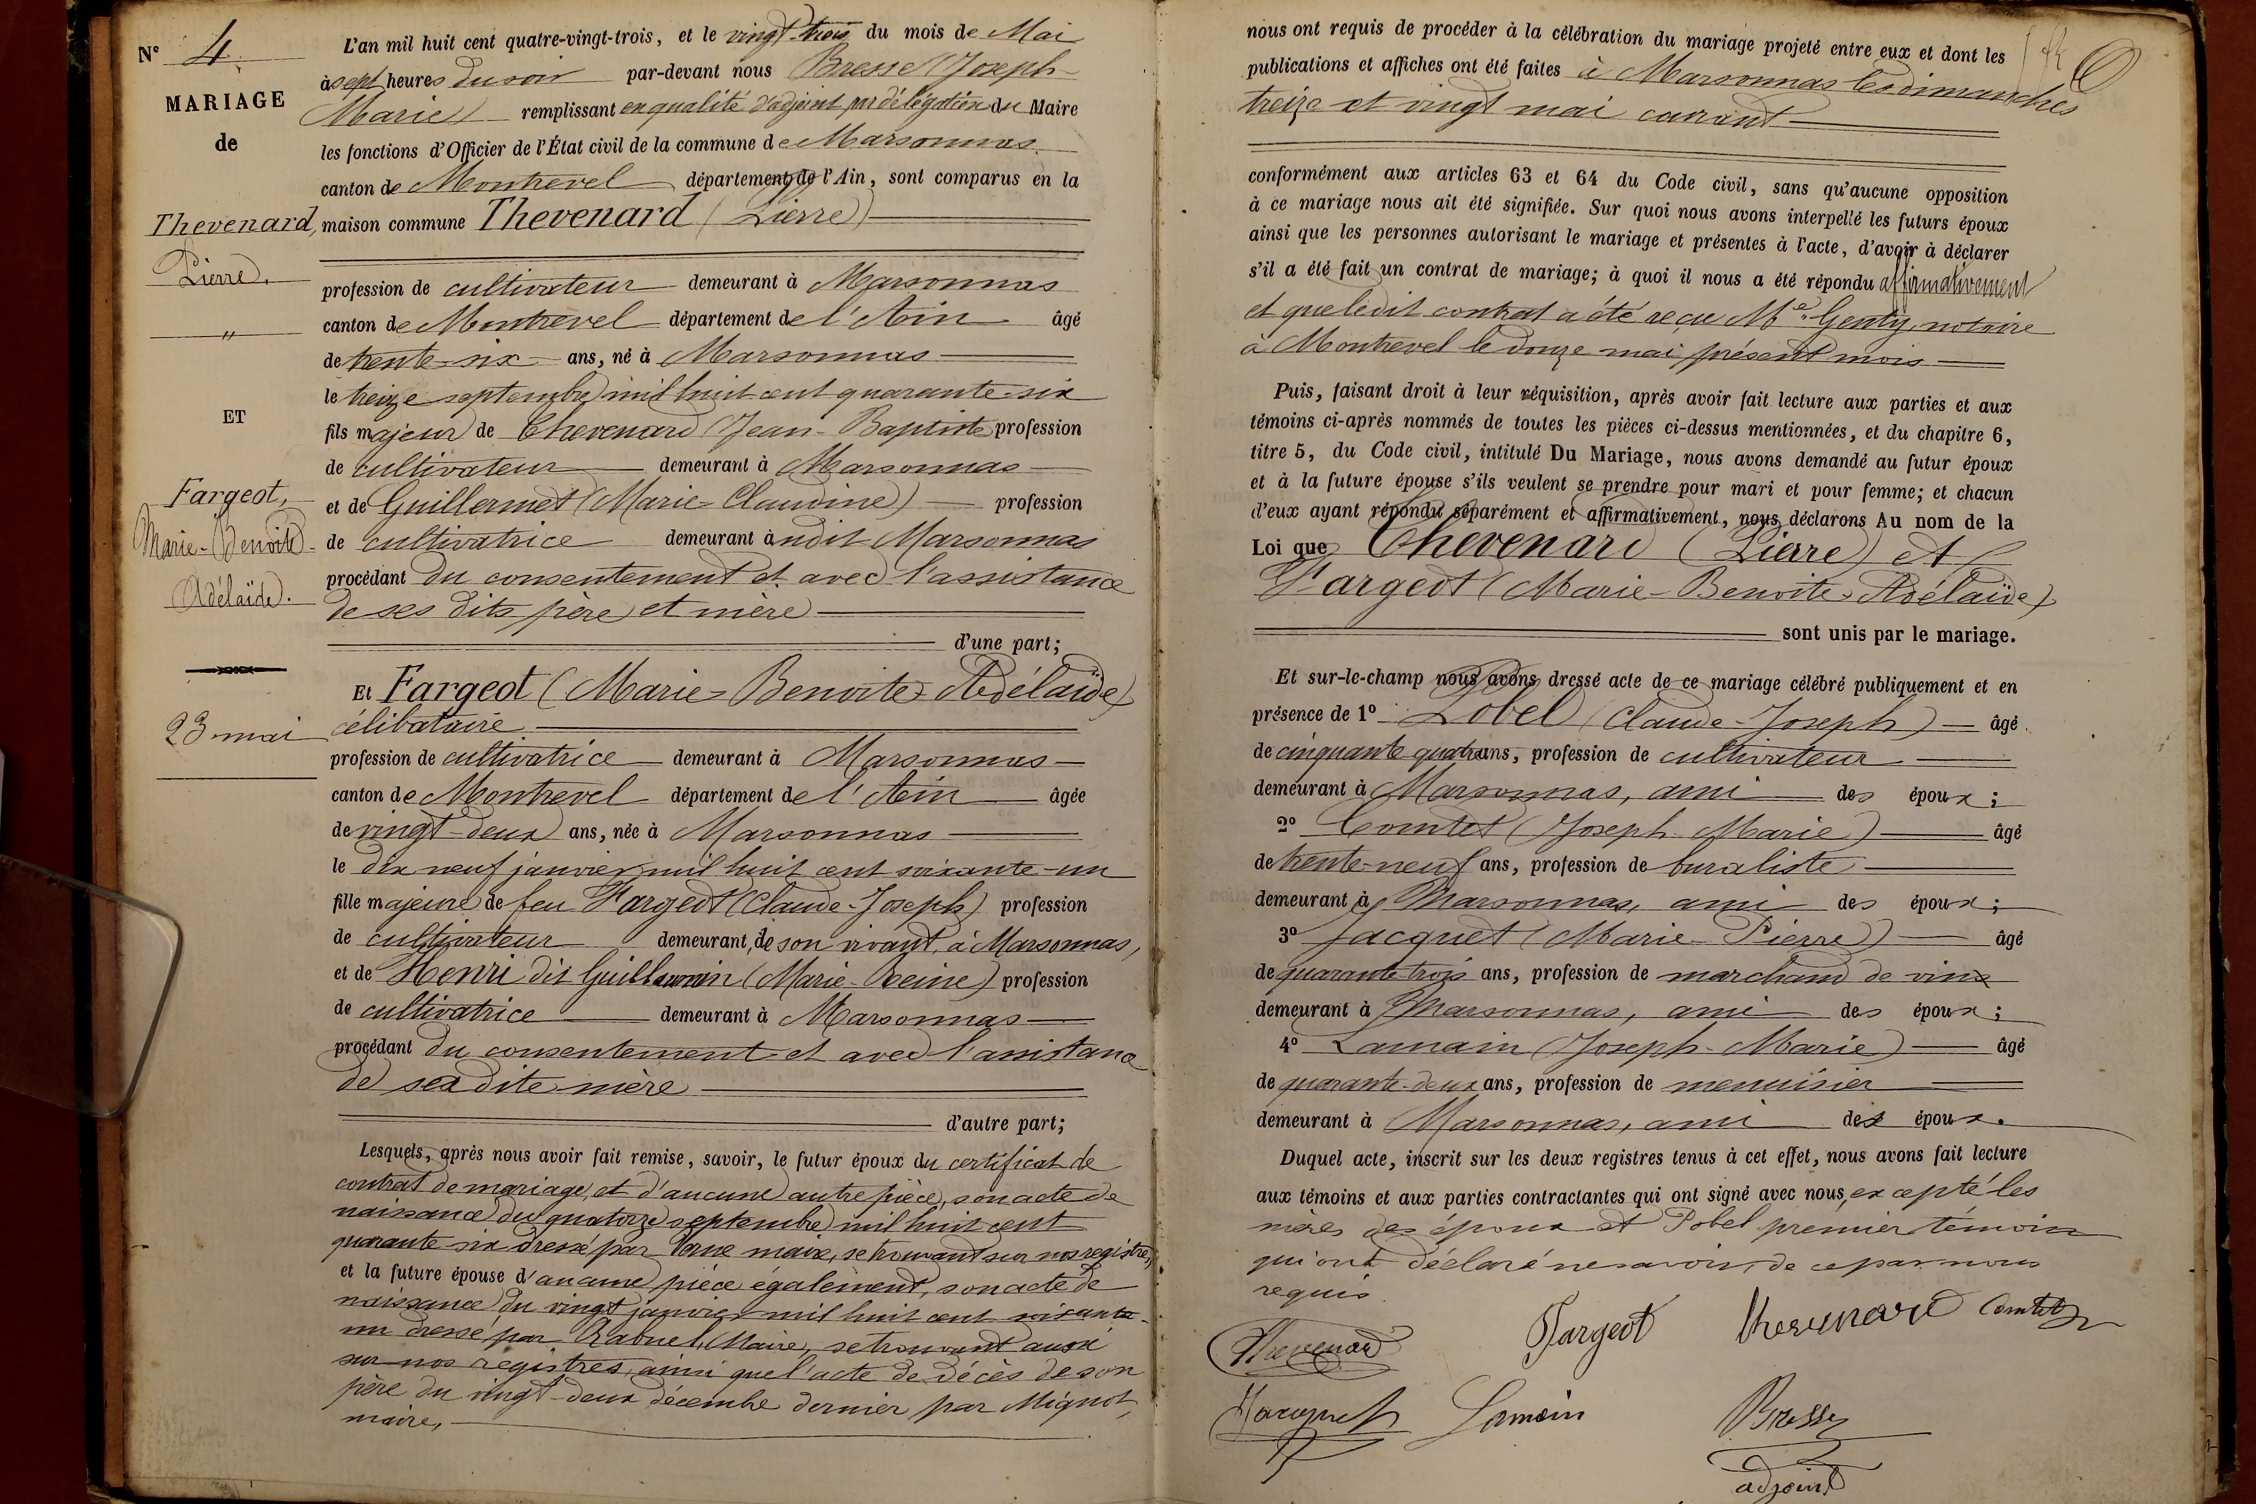 N° 4.
MARIAGE
de
Thevenard,
Pierre.
"
ET
Fargeot,
Marie-Benoite-
Adélaïde.
23 mai
L'an mil huit cent quatre-vingt-trois, et le vingt-trois du mois de Mai
à sept heures du soir par-devant nous Bresse (Joseph-
Marie) remplissant en qualité d'adjoint par délégation du Maire
les fonctions d'Officier de l'État civil de la commune de Marsonnas
canton de Montrevel département de l'Ain, sont comparus en la
maison commune Thevenard (Pierre)
profession de cultivateur demeurant à Marsonnas
canton de Montrevel département de l'Ain âgé
de trente-six ans, né à Marsonnas
le treize septembre mil huit cent quarante-six
fils majeur de Thevenard (Jean-Baptiste profession
de cultivateur demeurant à Marsonnas
et de Guillermet (Marie-Claudine) profession
de cultivatrice demeurant à udit Marsonnas
procédant du consentement et avec l'assistance
de ses dits père et mère
d'une part;
Et Fargeot (Marie-Benoite-Adélaïde)
célibataire
profession de cultivatrice demeurant à Marsonnas
canton de Montrevel département de l'Ain âgée
de vingt-deux ans, née à Marsonnas
le dix neuf janvier mil huit cent soixante-un
fille majeure de feu Fargeot (Claude-Joseph) profession
de cultivateur demeurant, de son vivant, à Marsonnas,
et de Henri dit Guillemin (Marie-Reine) profession
de cultivatrice demeurant à Marsonnas
procédant du consentement et avec l'assistance
de sa dite mère
d'autre part;
Lesquels, après nous avoir fait remise, savoir, le futur époux du certificat de
contrat de mariage, et d'aucune autre pièce, son acte de
naissance du quatorze septembre mil huit cent
quarante-six dressé par maire, se trouvant sur nos registres,
et la future épouse d'aucune pièce également, son acte de
naissance du vingt janvier mil huit cent soixante-
un dressé par Maire, se trouvant aussi
sur nos registres, ainsi que l'acte de décès de son
père du vingt-deux décembre dernier par Mignot,
maire,
nous ont requis de procéder à la célébration du mariage projeté entre eux et dont les
publications et affiches ont été faites à Marsonnas les dimanches
treize et vingt mai courant
conformément aux articles 63 et 64 du Code civil, sans qu'aucune opposition
à ce mariage nous ait été signifiée. Sur quoi nous avons interpellé les futurs époux
ainsi que les personnes autorisant le mariage et présentes à l'acte, d'avoir à déclarer
s'il a été fait un contrat de mariage; à quoi il nous a été répondu affirmativement
et que le dit contrat a été reçu Me Genty, notaire
à Montrevel le douze mai présent mois
Puis, faisant droit à leur réquisition, après avoir fait lecture aux parties et aux
témoins ci-après nommés de toutes les pièces ci-dessus mentionnées, et du chapitre 6,
titre 5, du Code civil, intitulé Du Mariage, nous avons demandé au futur époux
et à la future épouse s'ils veulent se prendre pour mari et pour femme; et chacun
d'eux ayant répondu séparément et affirmativement, nous déclarons Au nom de la
Loi que Thevenard (Pierre) et
Fargeot (Marie-Benoite-Adélaïde)
sont unis par le mariage.
Et sur-le-champ nous avons dressé acte de ce mariage célébré publiquement et en
présence de 1° Pobel (Claude-Joseph) âgé
de cinquante quatre ans, profession de cultivateur
demeurant à Marsonnas, ami des époux;
2° Comtet (Joseph-Marie) âgé
de trente-neuf ans, profession de buraliste
demeurant à Marsonnas, ami des époux;
3° Jacquet (Marie-Pierre) âgé
de quarante-trois ans, profession de marchand de vins
demeurant à Marsonnas, ami des époux;
4° Lamain (Joseph-Marie) âgé
de quarante-deux ans, profession de menuisier
demeurant à Marsonnas, ami des époux.
Duquel acte, inscrit sur les deux registres tenus à cet effet, nous avons fait lecture
aux témoins et aux parties contractantes qui ont signé avec nous, excepté les
mères des époux et Pobel premier témoin
qui ont déclaré ne savoir, de ce par nous
requis.
Thevenard Fargeot Thevenard Comtet
Jacquet Lamain Bresse
adjoint